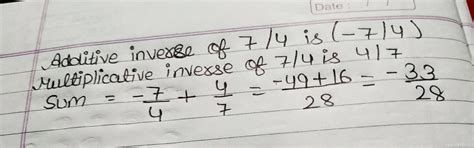 Date :
Additive inverse of 7/4 is (-7/4)
Multiplicative inverse of 7/4 is 4/7
Sum = -7/4 + 4/7 = -49+16/28 = -33/28